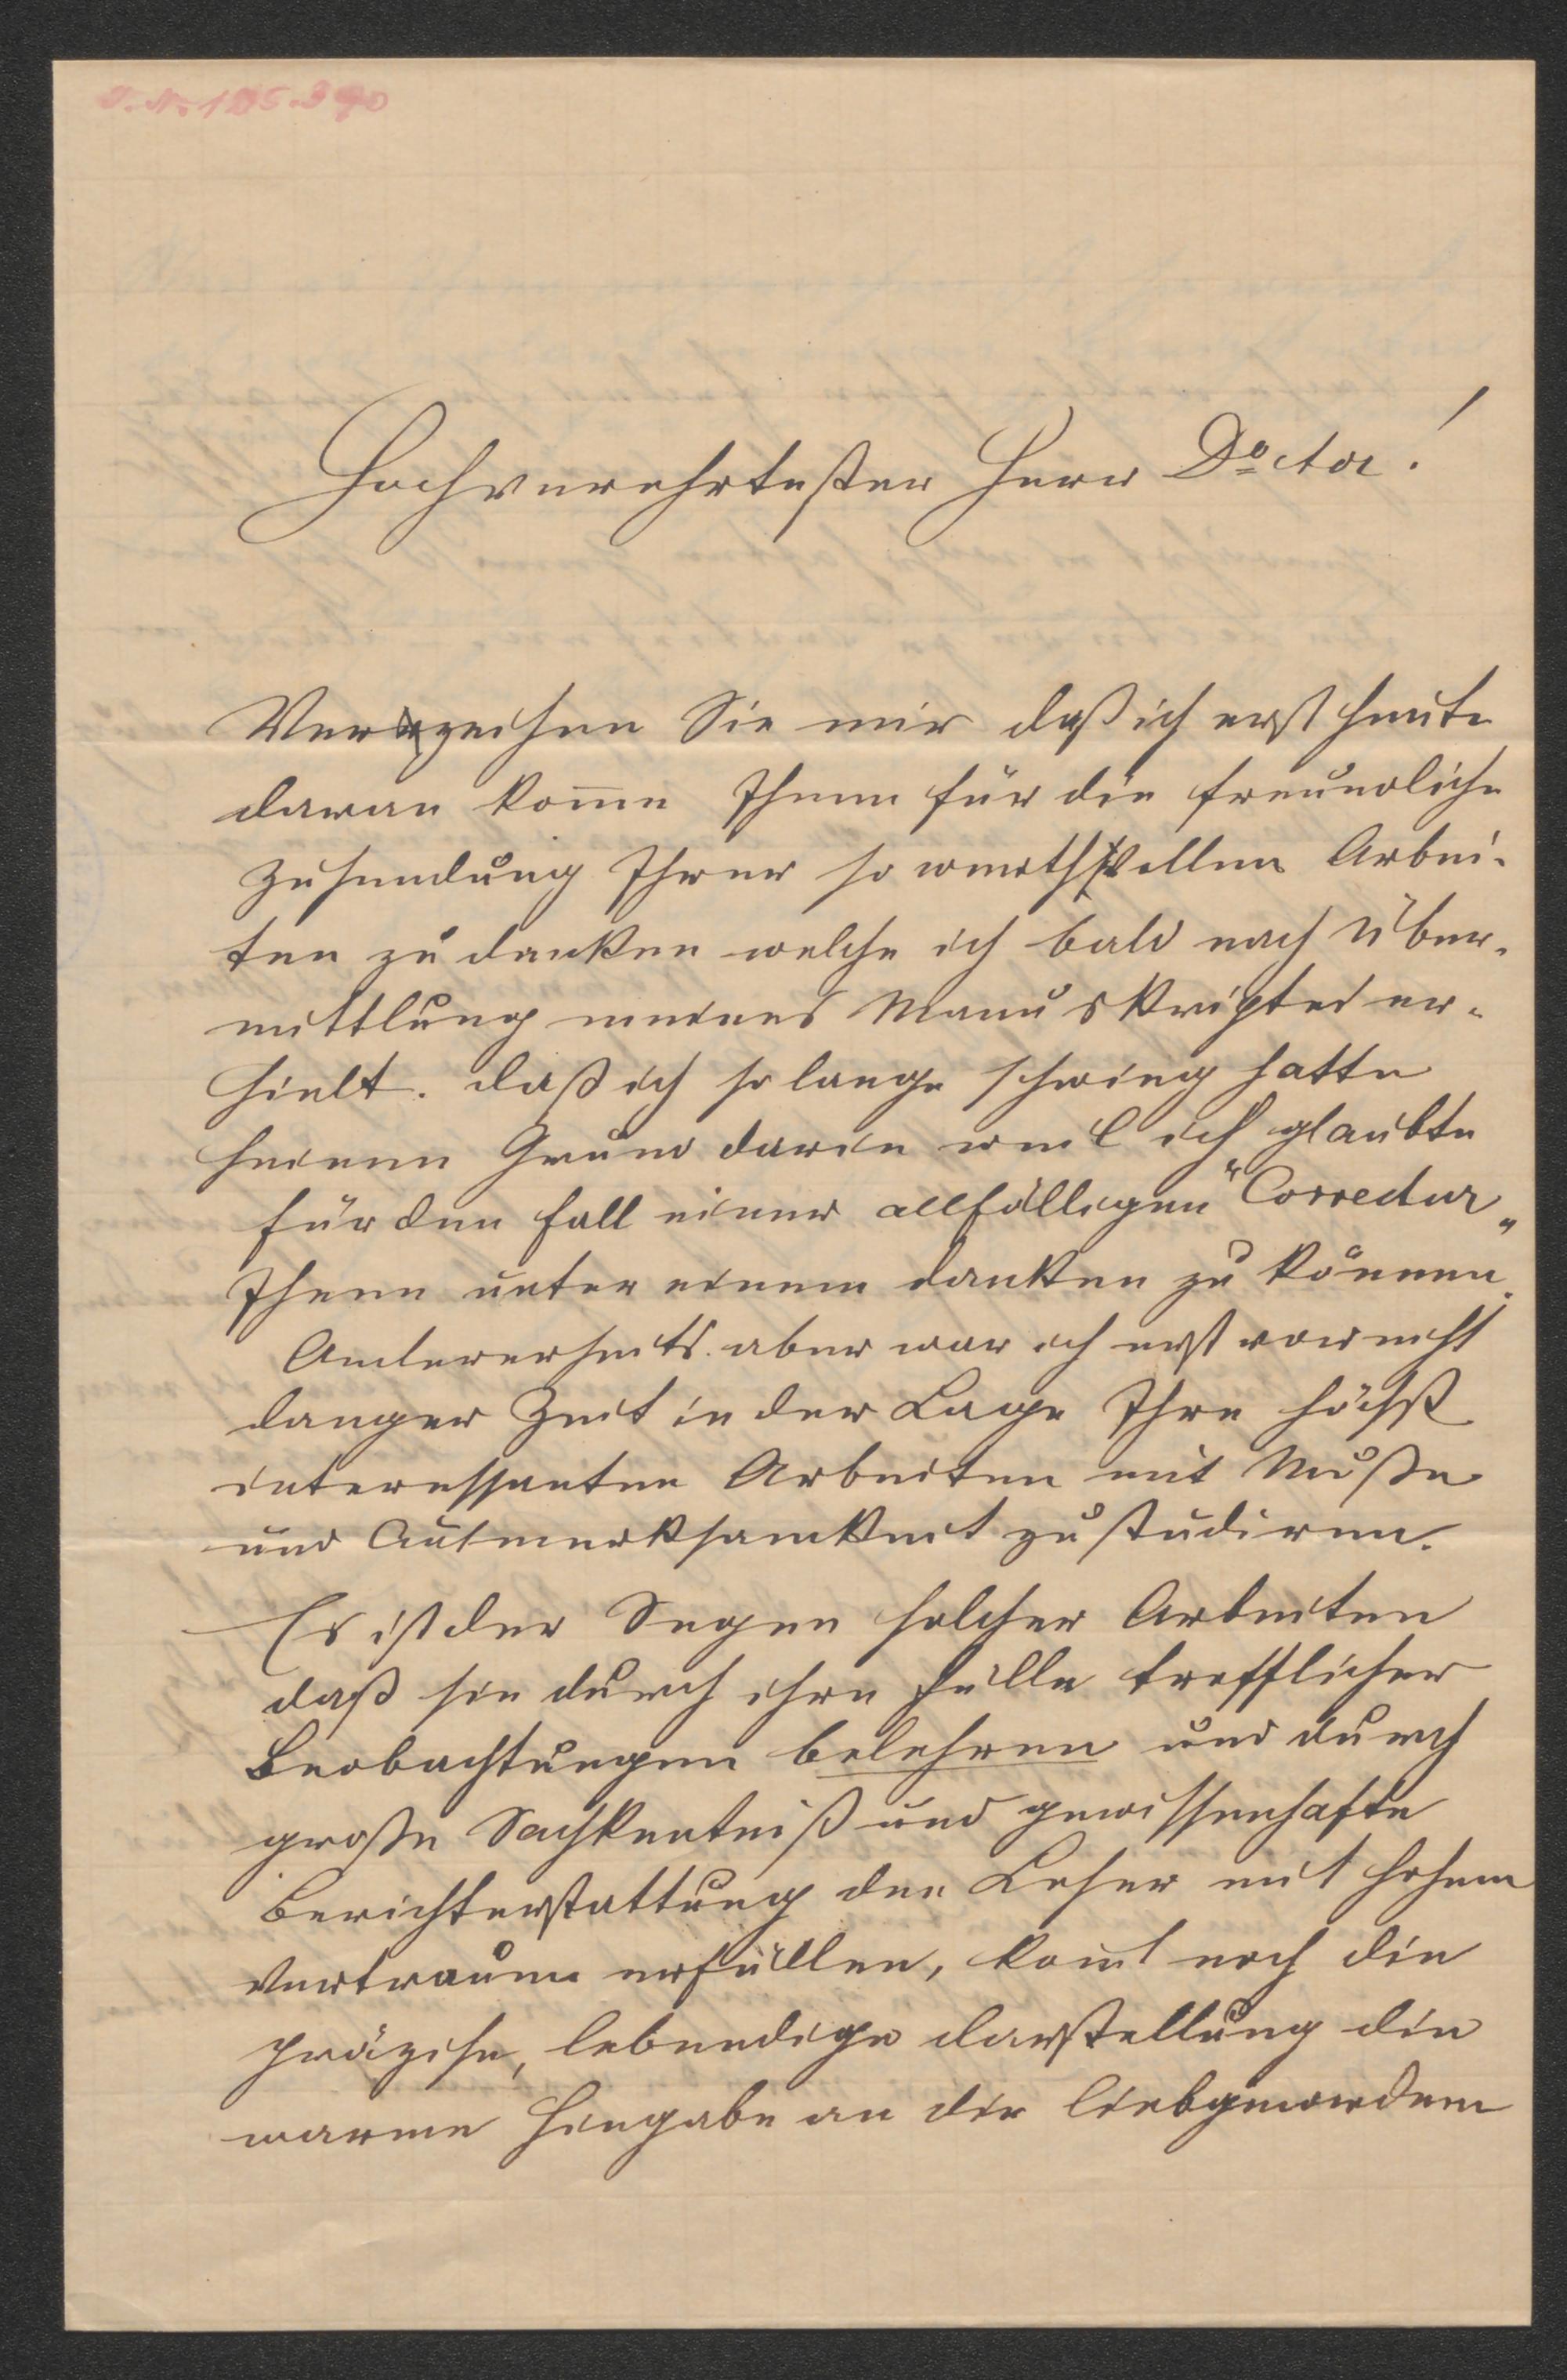 I. N. 185.390
Hochverehrtester Herr Doctor!
Verzeihen Sie mir daß ich erst heute
daran kom̅e Ihnen für die freundliche
Zusendung Ihrer so werthvollen Arbei-
ten zu danken welche ich bald nach Über-
mittlung meines Manuskriptes er-
hielt. Daß ich so lange schwieg hatte
seinen Grund darin weil ich glaubte
für den Fall einer allfälligen "Correctur"
Ihnen unter einem danken zu können.
Andererseits aber war ich erst vor nicht
langer Zeit in der Lage Ihre höchst
interessanten Arbeiten mit Muße
und Aufmerksamkeit zu studiren.
Es ist der Segen solcher Arbeiten
daß sie durch ihre Fülle trefflicher
Beobachtungen belehren und durch
große Sachkentniß und gewissenhafte
Berichterstattung den Leser mit hohem
Vertrauen erfüllen, kom̅t noch die
präzise, lebendige Darstellung die
warme Hingabe an die liebgewordene